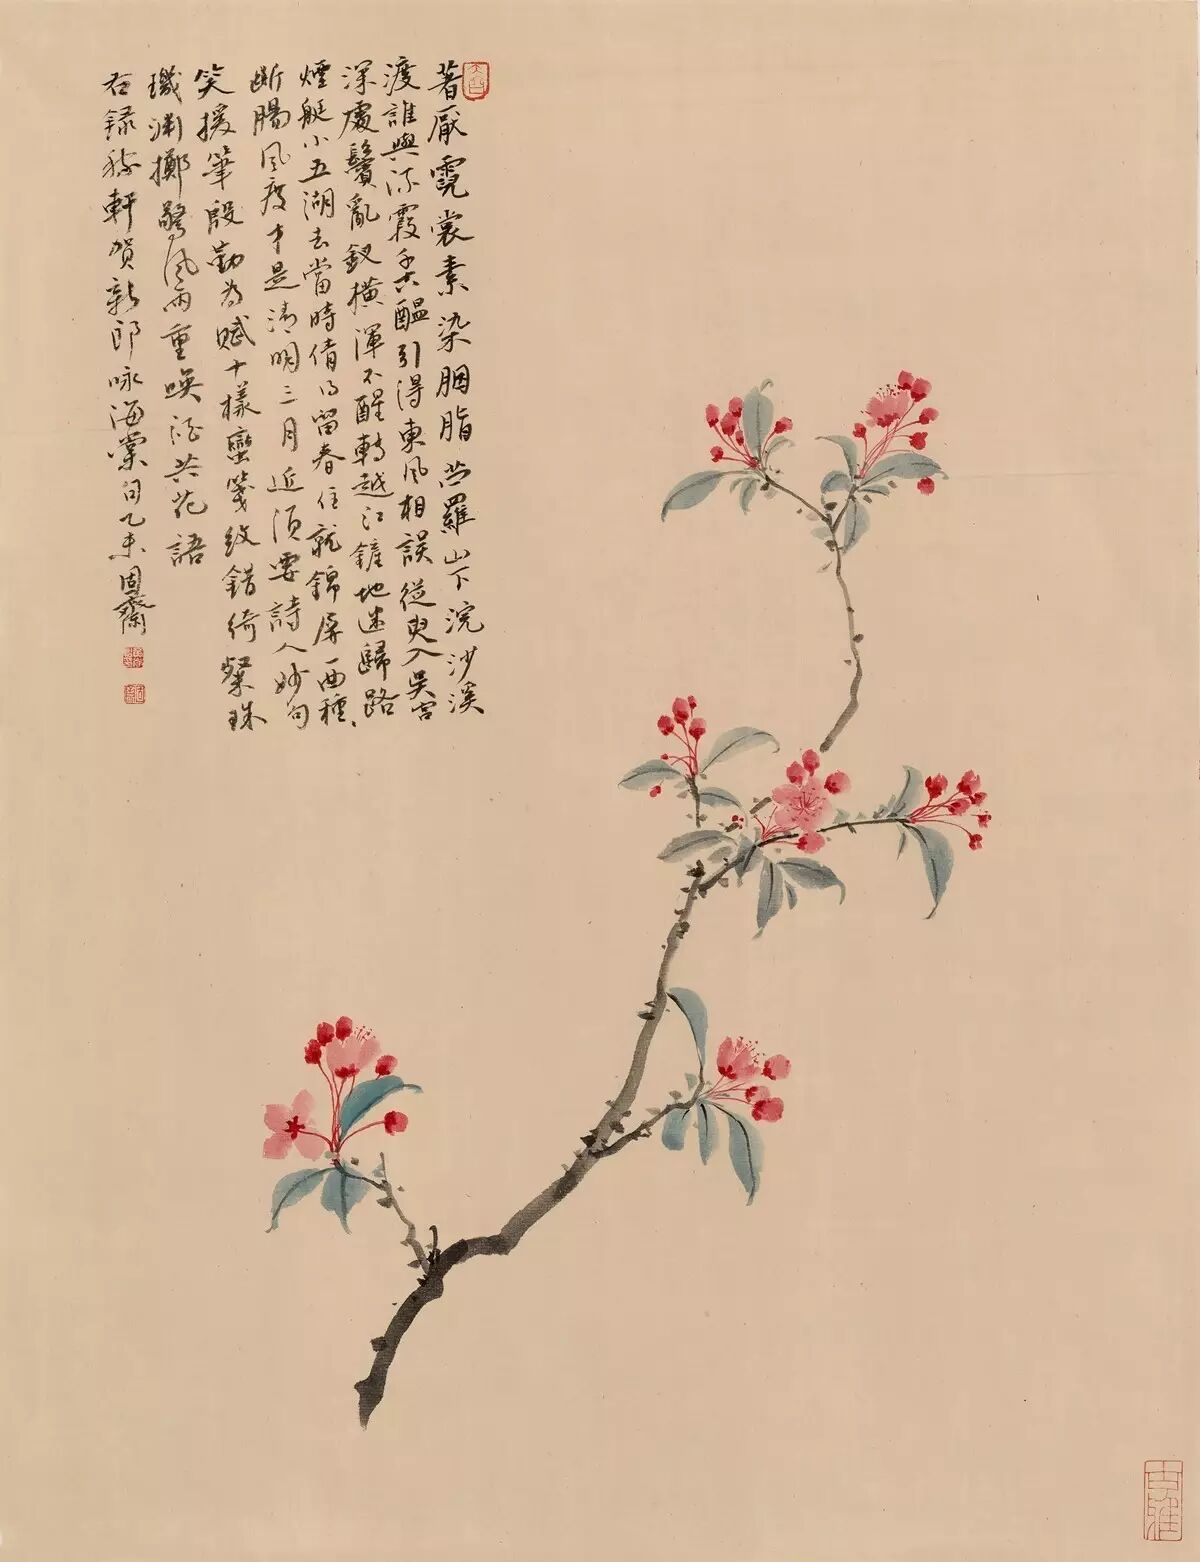 著厭霓裳素染胭脂苧羅山下浣沙溪
渡誰與流霞千古醞引得東風相誤從臾入吳宮
深處鬢亂釵橫渾不醒轉越江鏟地迷歸路
煙艇小五湖去當時倩得留春住就錦屏西種、
斷腸風度才是清明三月近須要詩人妙句
笑援筆殷勤為賦十樣蠻箋紋錯綺粲珠
璣淵擲驚風雨重喚酒共花語
右錄稼軒賀新郎詠海棠句乙未固齋
吉雅